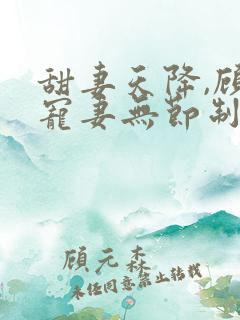 甜妻天降,顾
寵妻無節制
顧元森
未经同意禁止转载